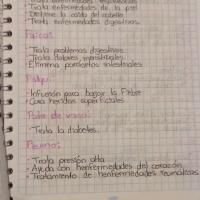 Trata enfermedades respiratorias
Trata enfermedades de la piel
Detiene la caida del cabello
Trata enfermedades digestivas.
Trata problemas digestivos
Trata dolores menstruales
Elimina parasitos intestinales
Infusion para bajar la fiebre
Cura heridas superficiales
Pata de vaca:
Trata la diabetes.
Trata presión alta
Ayuda con henfermedades del corazón
Tratamiento de henfermedades reumaticas